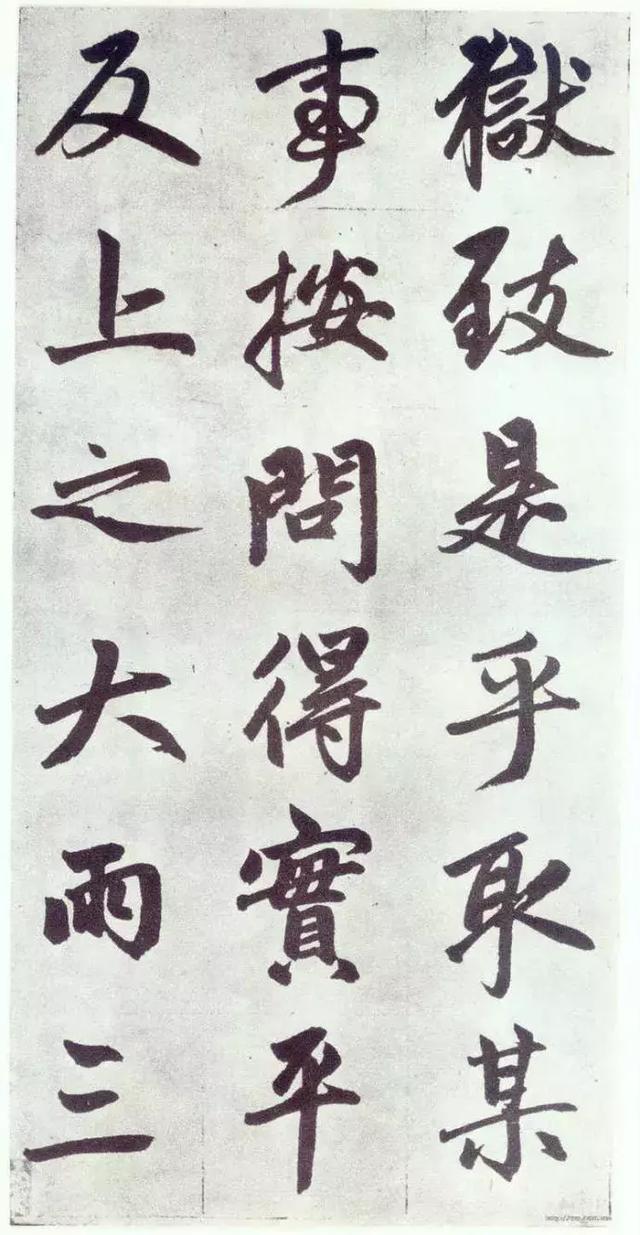 獄致是乎取某
事按問得實平
反上之大雨三